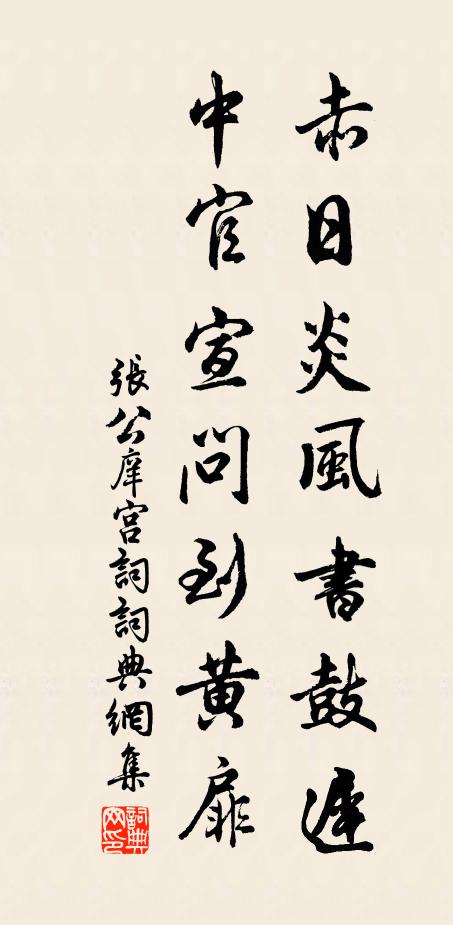 赤日炎風書鼓遲
中官宣問到黃扉
張公庠宮詞詞典網集
詞典网印